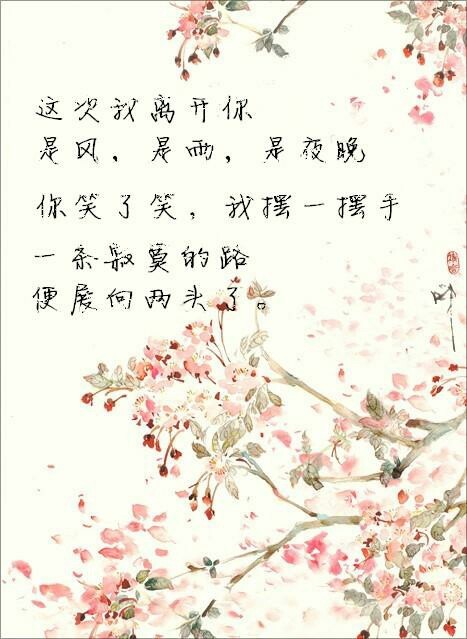 这次我离开你
是风，是雨，是夜晚
你笑了笑，我摆一摆手
一条寂寞的路
便展向两头了。